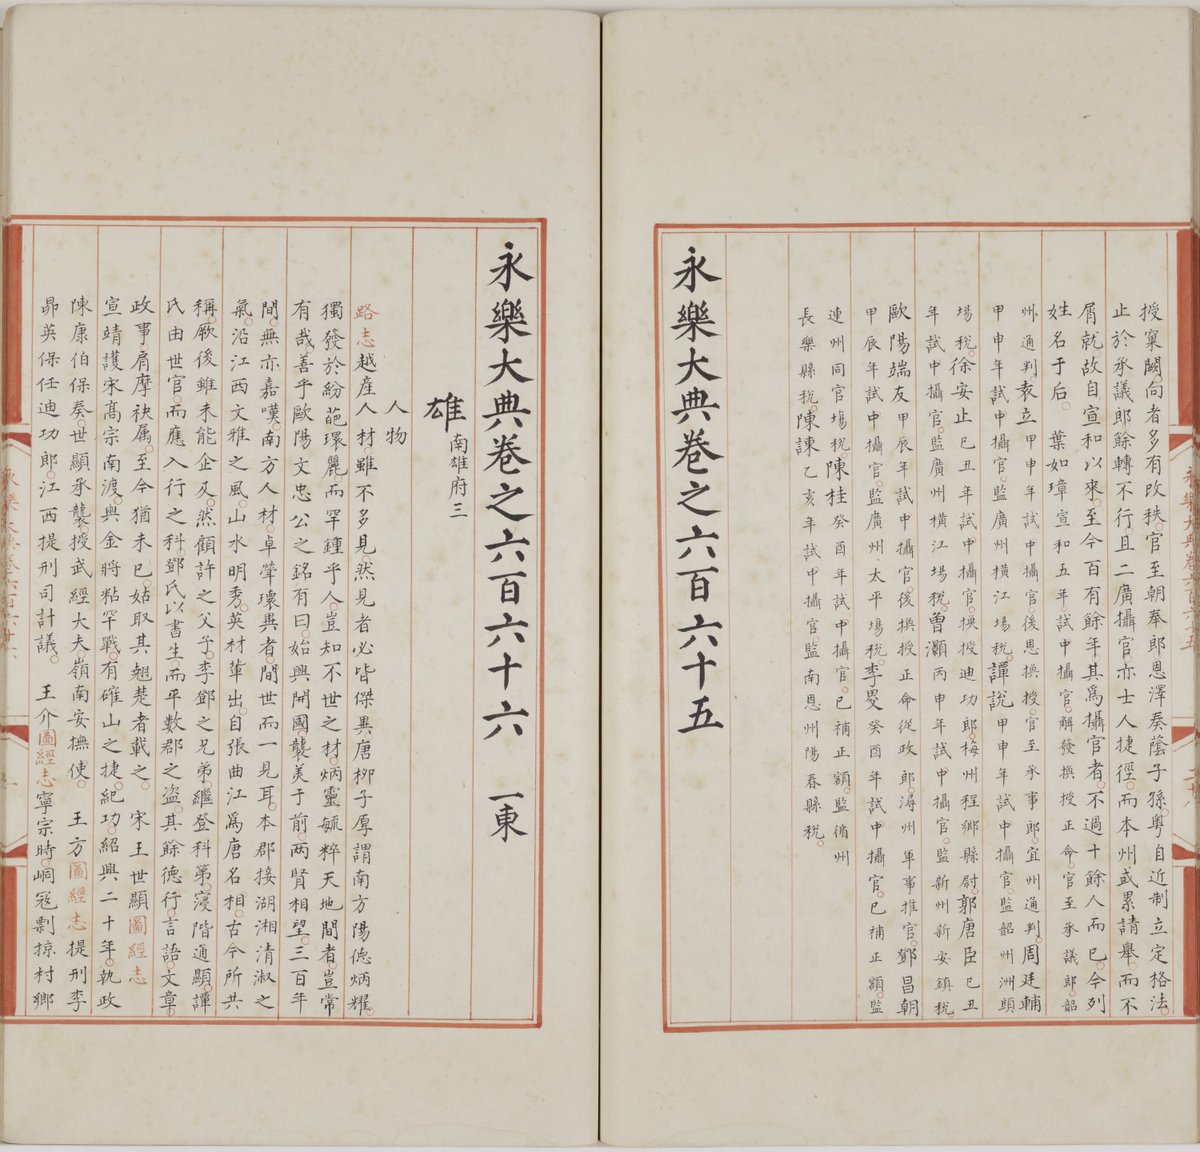 授窠闕向者多有改秩官至朝奉郎恩澤奏蔭子孫粤自近制立定格法
止於承議郎餘轉不行且二廣攝官亦士人捷徑而本州或累請舉而不
屑就故自宣和以來至今百有餘年其爲攝官者不過十餘人而已今列
姓名于后 葉如璋宣和五年試中攝官解發換授正命官至承議郎韶
州通判袁立甲申年試中攝官後恩換授官至承事郎宜州通判周廷輔
甲申年試中攝官監廣州橫江場稅譚說甲申年試中攝官監韶州洲頭
場稅徐安止己丑年試中攝官換授迪功郎梅州程鄉縣尉郭唐臣己丑
年試中攝官監廣州橫江場稅曾灝丙申年試中攝官監新州新安鎮稅
歐陽端友甲辰年試中攝官後換授正命從政郎潯州軍事推官鄧昌朝
甲辰年試中攝官監廣州太平場稅李旻癸酉年試中攝官已補正額監
連州同官場稅陳桂癸酉年試中攝官已補正額監循州
長樂縣稅陳諫乙亥年試中攝官監南恩州陽春縣稅
永樂大典卷之六百六十五
永樂大典卷之六百六十六 一東
雄 南雄府三
人物
路志越產人材雖不多見然見者必皆傑異唐柳子厚謂南方陽德炳耀
獨發於紛葩瓌麗而罕鍾乎人豈知不世之材炳靈毓粹天地間者豈常
有哉善乎歐陽文忠公之銘有曰始興開國襲美于前兩賢相望三百年
間無亦嘉嘆南方人材卓犖瓌異者間世而一見耳本郡接湖湘清淑之
氣沿江西文雅之風山水明秀英材輩出自張曲江爲唐名相古今所共
稱厥後雖未能企及然顧許之父子李鄧之兄弟繼登科第寖階通顯譚
氏由世官而應入行之科鄧氏以書生而平數郡之盜其餘德行言語文章
政事肩摩袂属至今猶未已姑取其翹楚者載之 宋王世顯圖經志
宣靖護宋髙宗南渡與金將粘罕戰有確山之捷紀功紹興二十年執政
陳康伯保奏世顯承襲授武經大夫嶺南安撫使 王方圖經志提刑李
昴英保任迪功郎江西提刑司計議 王介圖經志寧宗時峒寇剽掠村鄉